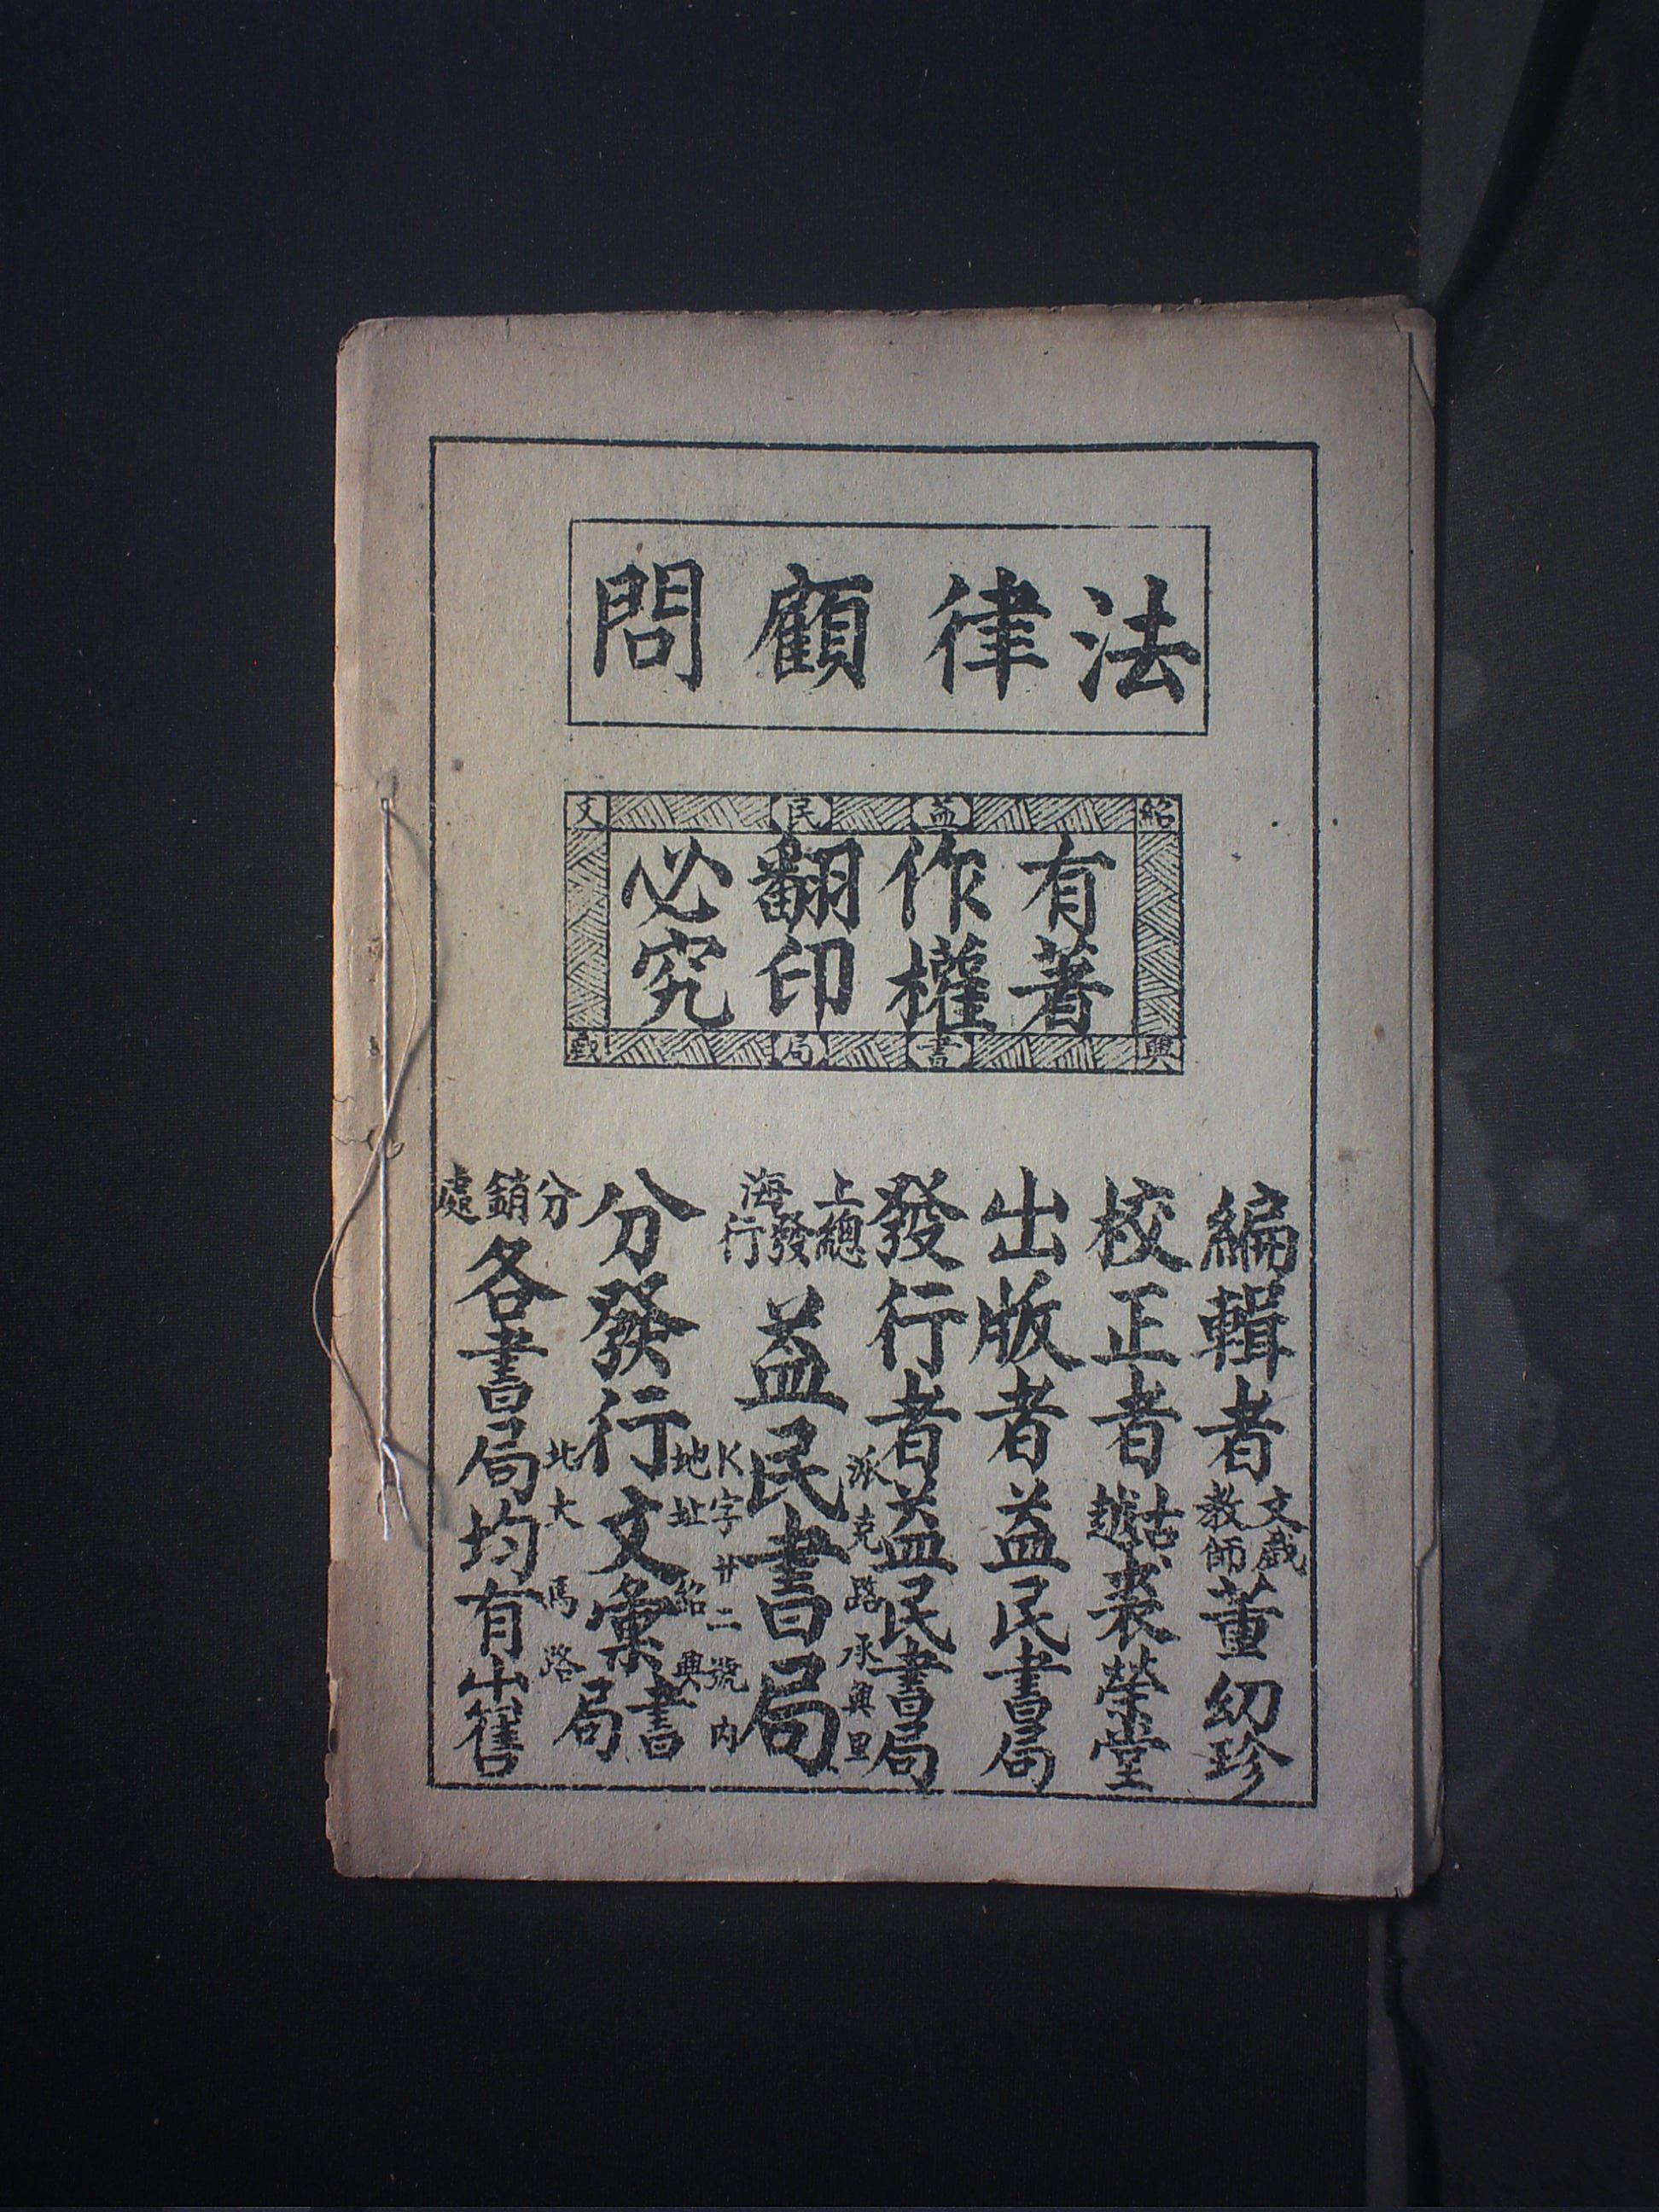 法律顧問
紹益民文
有著
作權
翻印
必究
興書局戲
編輯者文戲教師董幼珍
校正者古越裘榮堂
出版者益民書局
發行者益民書局
上海總發行益民書局
派克路承興里
K字廿二號內
分發行文彙書局
地址紹興
北大馬路
分銷處各書局均有出售